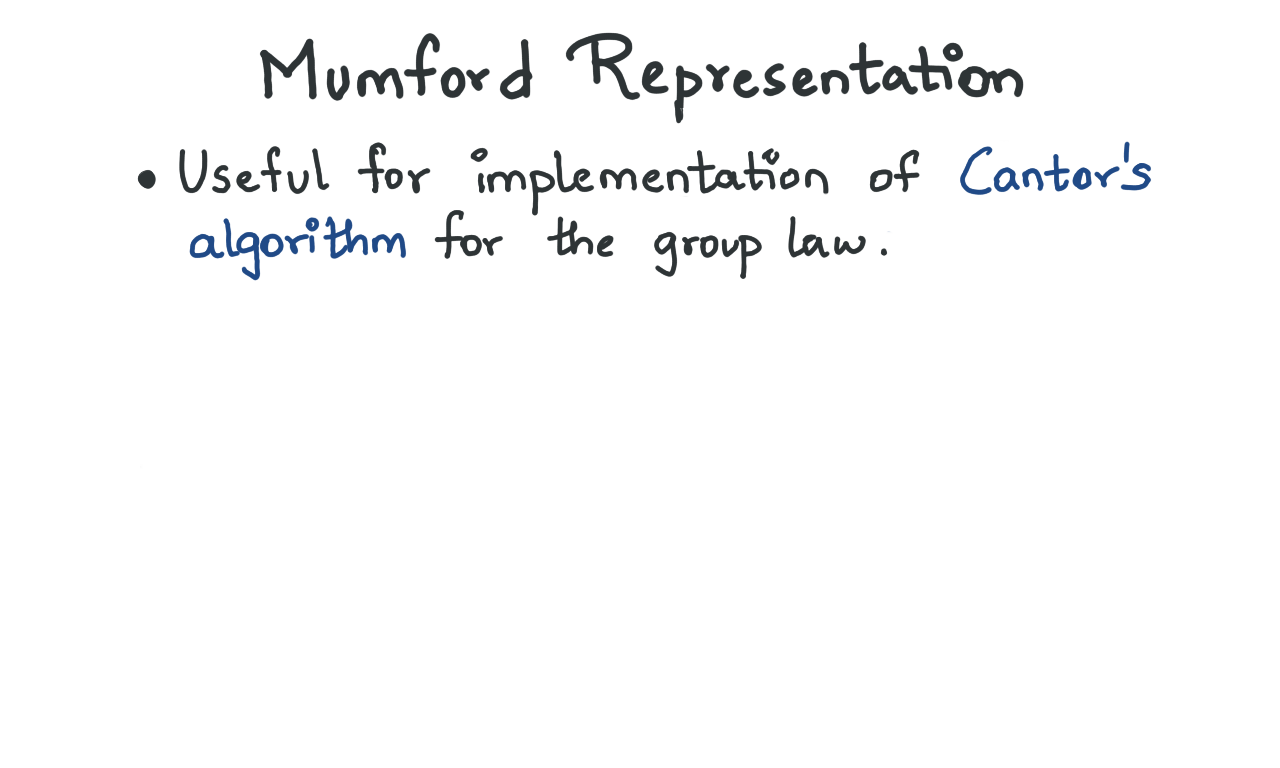 Mumford Representation
• Useful for implementation of Cantor's
algorithm for the group law.